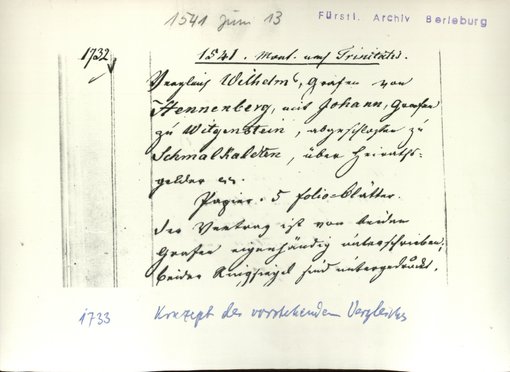 1541 Juni 13
Fürstl. Archiv Berleburg
1732
1541. Mont. nach Trinitatis.
Vergleich Wilhelms, Grafen von
Hennenberg, mit Johann, Grafen
zu Witgenstein, abgeschlossen zu
Schmalkalden, über Heiraths-
gelder
Papier. 5 folio-Blätter.
Der Vertrag ist von beiden
Grafen eigenhändig unterschrieben,
beider Ringsiegel sind untergedruckt.
1733 Konzept des vorstehenden Vergleichs